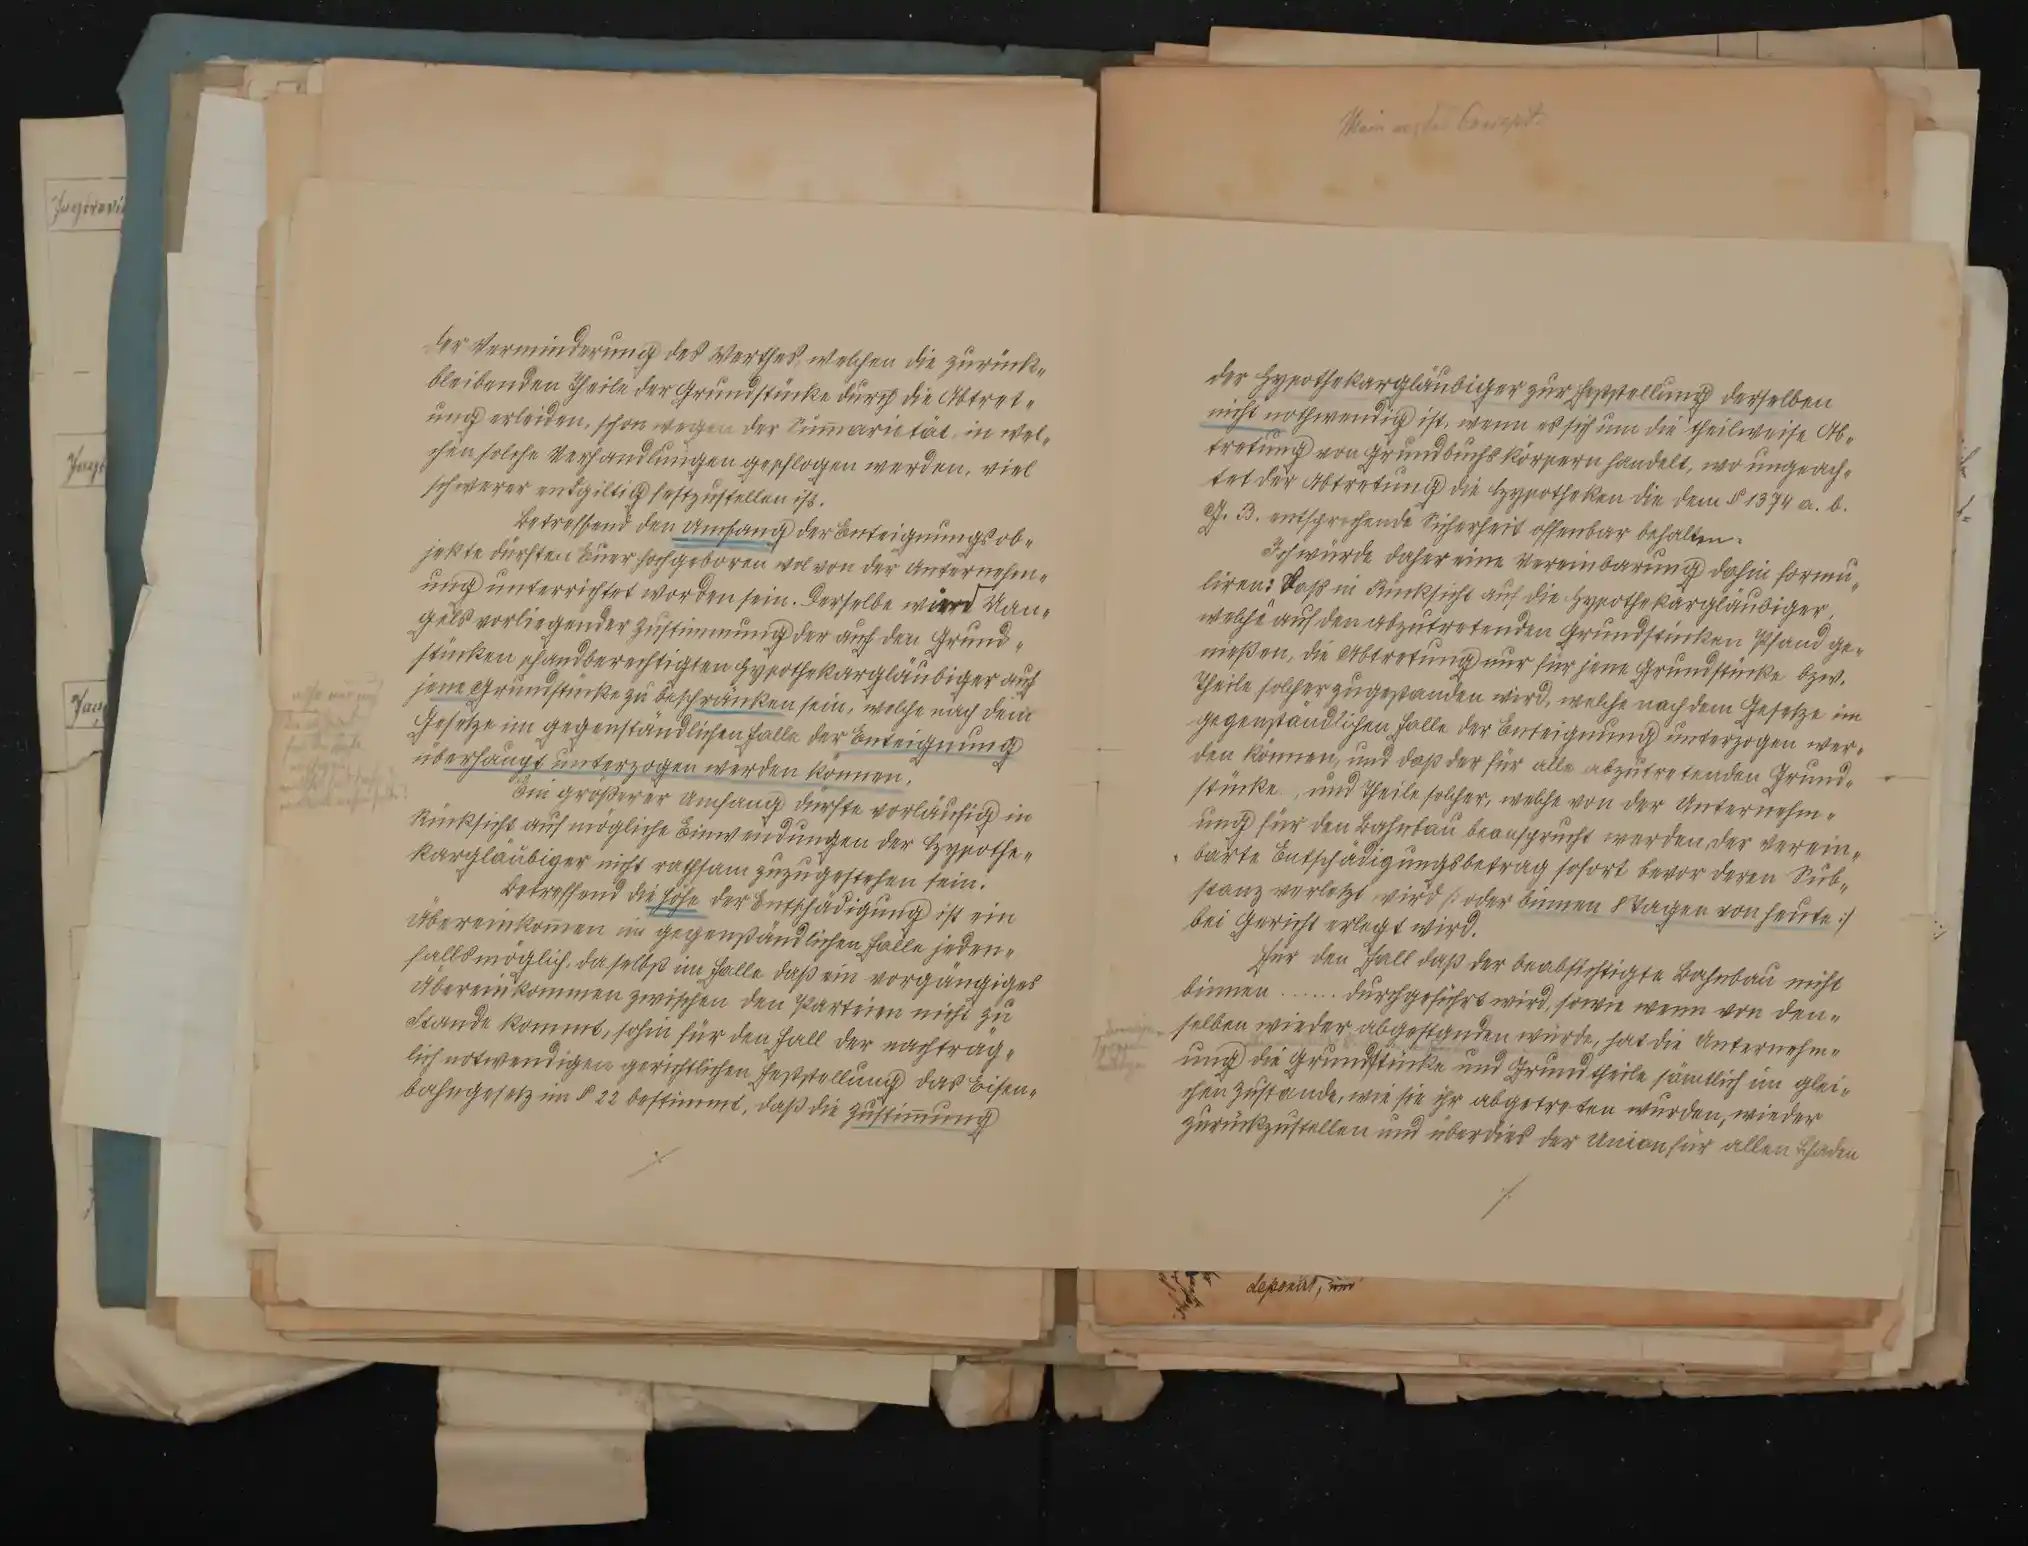 der Verminderung des Werthes, welchen die zurück-
bleibenden Theile der Grundstücke durch die Abtret-
ung erleiden, schon wegen der Sum̄arietät, in wel-
chen solche Verhandlungen gepflogen werden, viel
schwerer entgiltig festzustellen ist.
Betreffend den Umfang der Enteignungsob-
jekte dürften Euer Hochgeboren wol von der Unternehm-
ung unterrichtet worden sein. Derselbe wird Man-
gels vorliegender Zustimmung der auf den Grund-
stücken pfandberechtigten Hypothekargläubiger auf
jene Grundstücke zu beschränken sein, welche nach dem
Gesetze im gegenständlichen Falle der Enteignung
überhaupt unterzogen werden können.
Ein größerer Umfang dürfte vorläufig in
Rücksicht auf mögliche Einwendungen der Hypothe-
kargläubiger nicht rathsam zuzugestehen sein.
Betreffend die Höhe der Entschädigung ist ein
Übereinkom̄en im gegenständlichen Falle jeden-
falls möglich, da selbst im Falle daß ein vorgängiges
Übereinkommen zwischen den Parteien nicht zu
Stande kommt, sohin für den Fall der nachträg-
lich notwendigen gerichtlichen Feststellung das Eisen-
bahngesetz im § 22 bestimmt, daß die Zustim̄ung
./.
der Hypothekargläubiger zur Feststellung derselben
nicht nothwendig ist, wenn es sich um die theilweise Ab-
tretung von Grundbuchskörpern handelt, wo ungeach-
tet der Abtretung die Hypotheken die dem § 1374 a. b.
G. B. entsprechende Sicherheit offenbar behalten.
Ich würde daher eine Vereinbarung dahin formu-
liren: Daß in Rücksicht auf die Hypothekargläubiger,
welche auf den abzutretenden Grundstücken Pfand ge-
nießen, die Abtretung nur für jene Grundstücke bzw.
Theile solcher zugestanden wird, welche nach dem Gesetze im
gegenständlichen Falle der Enteignung unterzogen wer-
den können, und daß der für alle abzutretenden Grund-
stücke, und Theile solcher, welche von der Unternehm-
ung für den Bahnbau beansprucht werden, der verein-
barte Entschädigungsbetrag sofort bevor deren Sub-
stanz verletzt wird /: oder binnen 8 Tagen von heute :/
bei Gericht erlegt wird.
Für den Fall daß der beabsichtigte Bahnbau nicht
binnen ...... durchgeführt wird, sowie wenn von dem-
selben wieder abgestanden würde, hat die Unternehm-
ung die Grundstücke und Grundtheile sämtlich im glei-
chen Zustande, wie sie ihr abgetreten wurden, wieder
zurückzustellen und überdies der Union für allen Schaden
./.